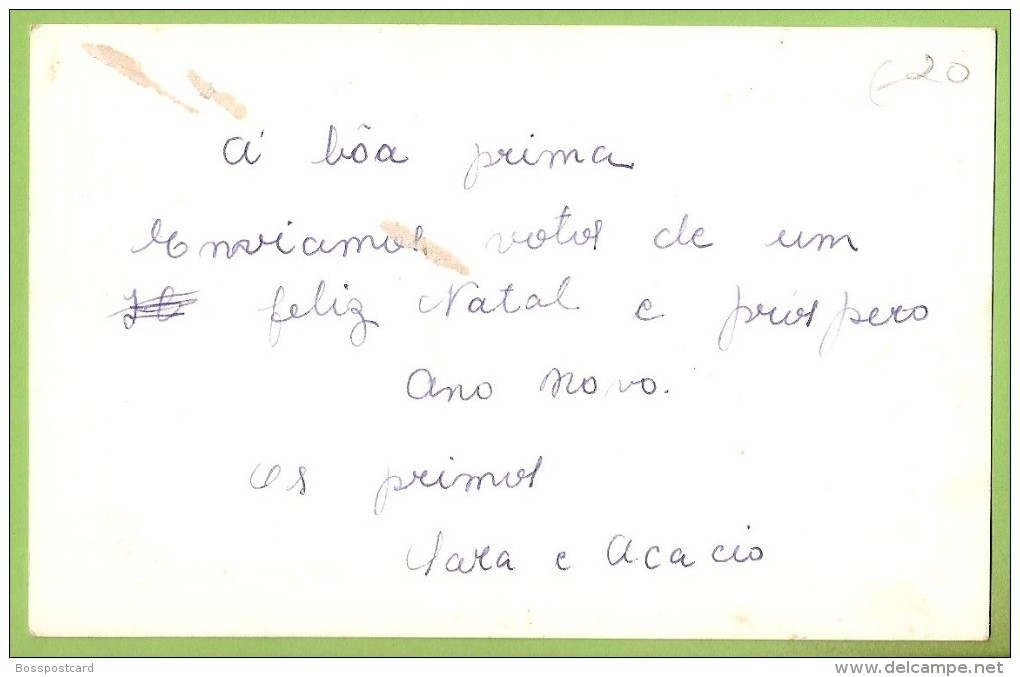 20
Á bôa prima
Enviamos votos de um
feliz Natal e prós pero
Ano novo.
Os primos
Sara e Acacio
Bosspostcard
www.delcampe.net